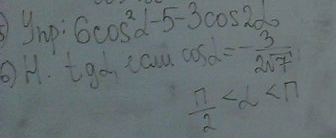 5) Упр: 6cos²α-5-3cos2α
6) Н. tgα, если cosα=-3/(2√7)
π/2 <α<π